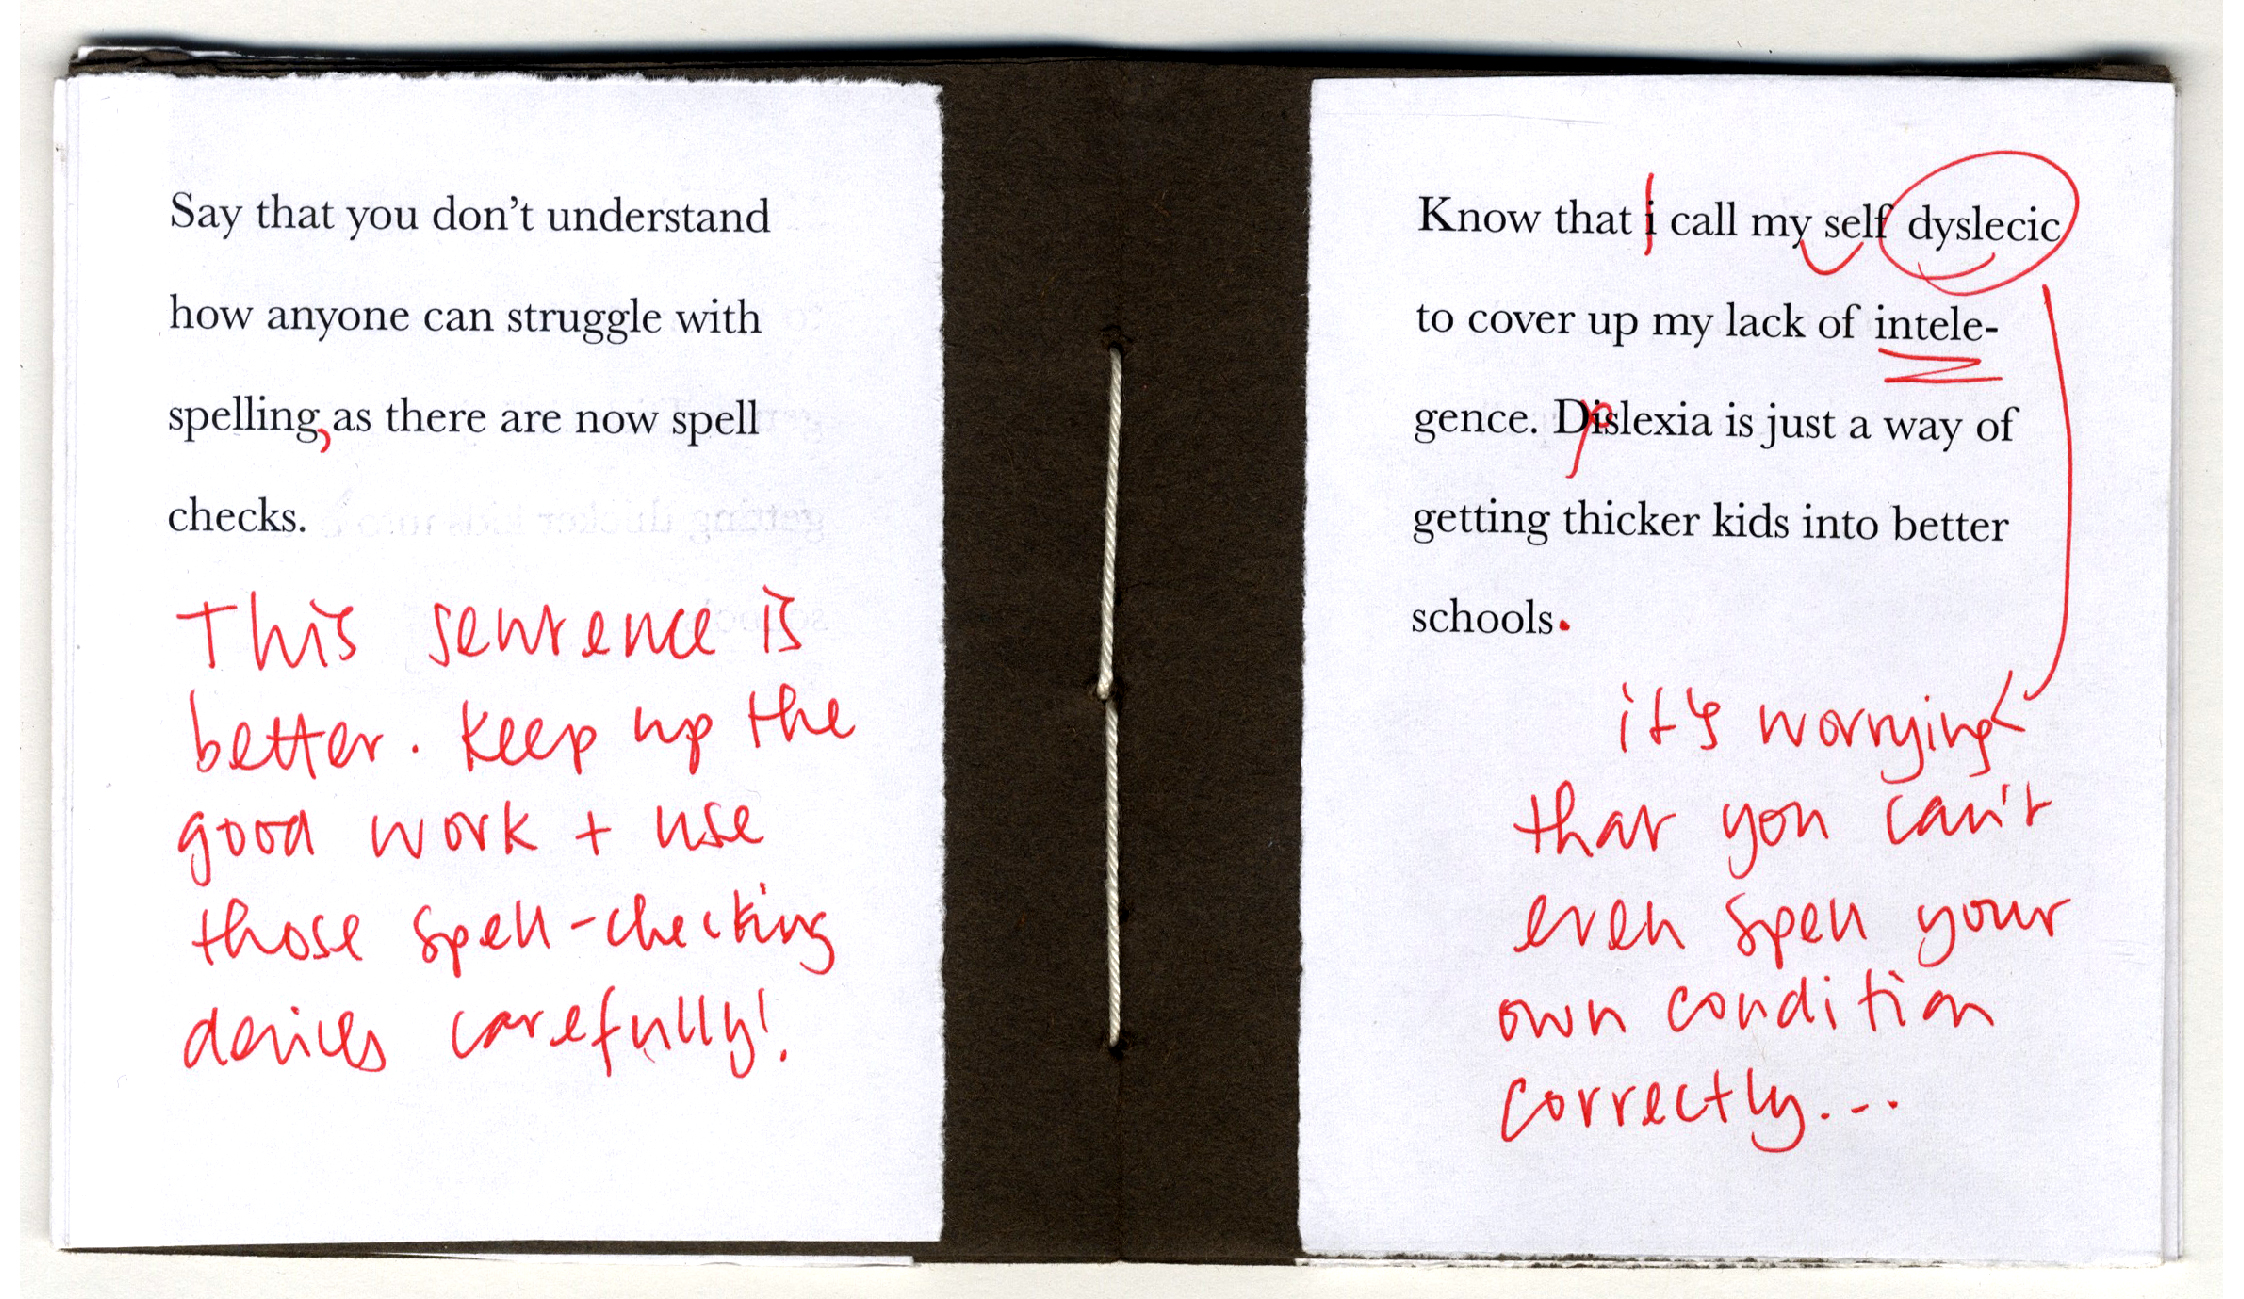 Say that you don't understand
how anyone can struggle with
spelling, as there are now spell
checks.
This sentence is
better. Keep up the
good work + use
those spell-checking
devices carefully!
Know that i call my self dyslecic
to cover up my lack of intele-
gence. Dislexia is just a way of
getting thicker kids into better
schools.
it's worrying
that you can't
even spell your
own condition
correctly...